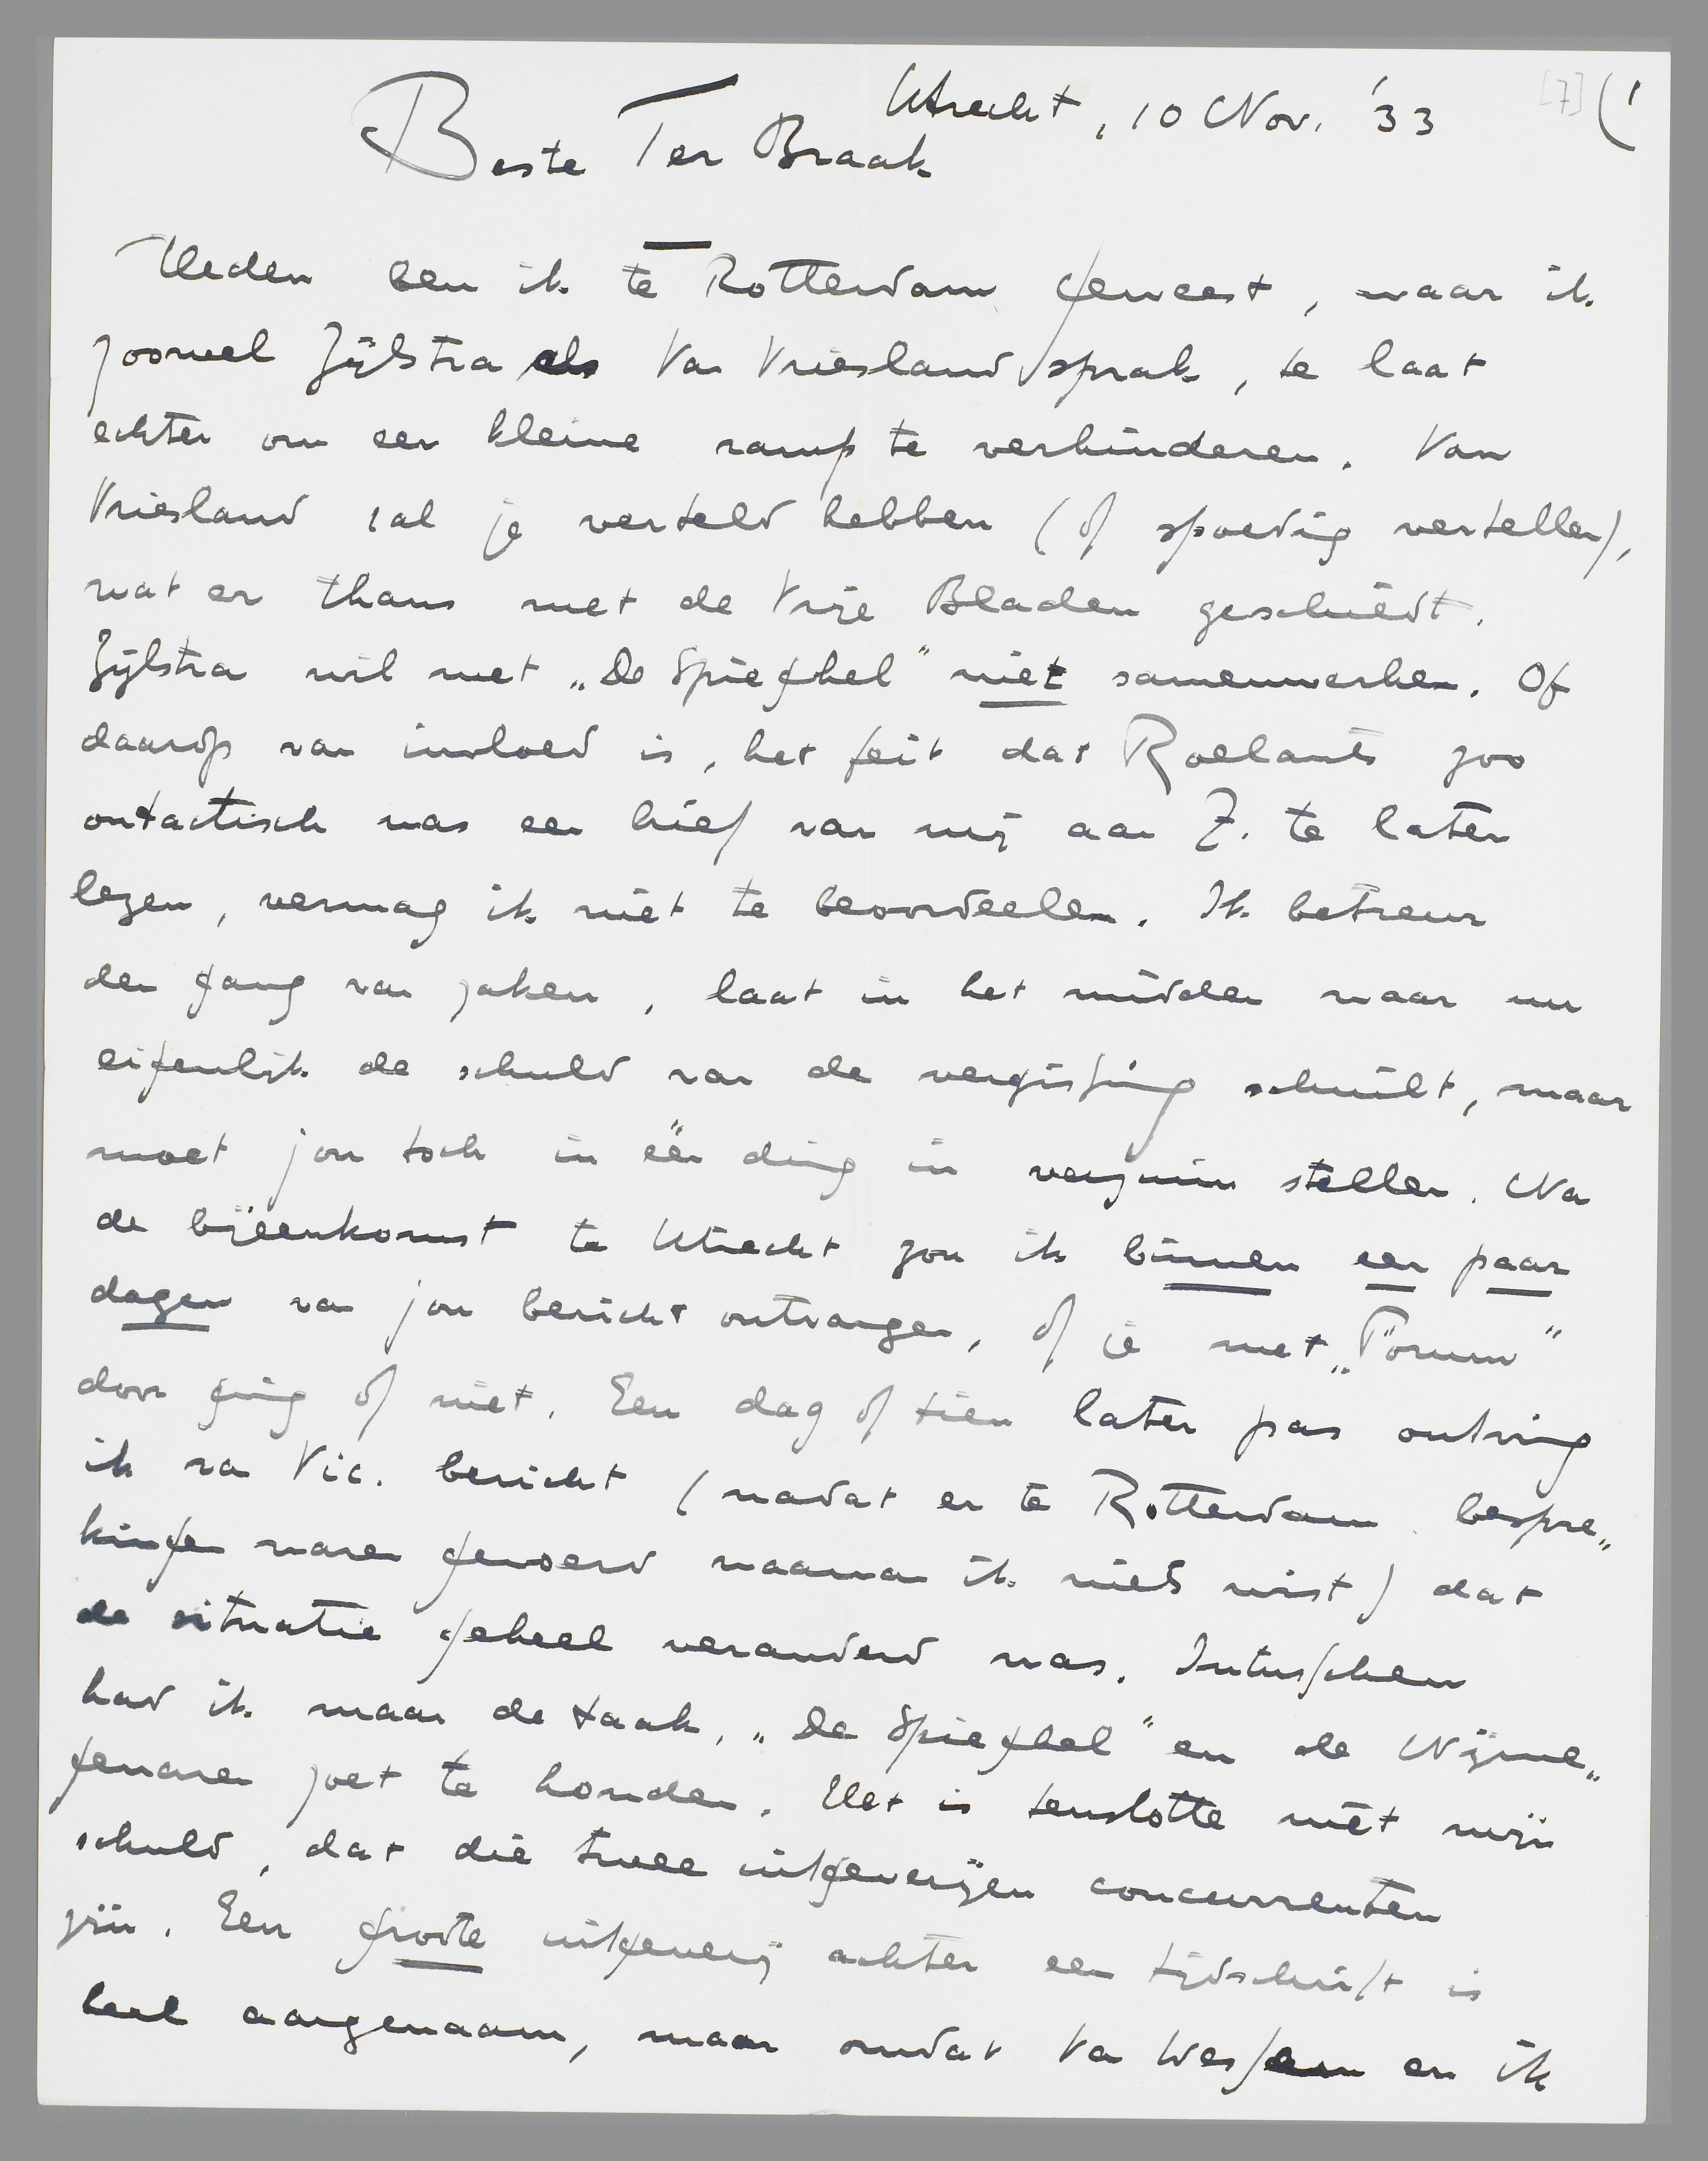 Utrecht, 10 Nov. '33
[7] (1
Beste Ter Braak
Heden ben ik te Rotterdam geweest, waar ik
zoowel Zijlstra als Van Vriesland sprak, te laat
echter om een kleine ramp te verhinderen. Van
Vriesland zal je verteld hebben (of spoedig vertellen),
wat er thans met de Vrije Bladen geschiedt.
Zijlstra wil met „De Spieghel" niet samenwerken. Of
daarop van invloed is, het feit dat Roelants zoo
ontactisch was een brief van mij aan Z. te laten
lezen, vermag ik niet te beoordeelen. Ik betreur
den gang van zaken, laat in het midden waar nu
eigenlijk de schuld van de vergissing schuilt, maar
moet jou toch in één ding in verzuim stellen. Na
de bijeenkomst te Utrecht zou ik binnen een paar
dagen van jou bericht ontvangen, of je met „Forum"
door ging of niet. Een dag of tien later pas ontving
ik van Vic. bericht (nadat er te Rotterdam bespre„
kingen waren gevoerd waarvan ik niets wist) dat
de situatie geheel veranderd was. Intusschen
had ik maar de taak, „De Spieghel" en de Nijme„
genaren zoet te houden. Het is tenslotte niet mijn
schuld, dat die twee uitgeverijen concurrenten
zijn. Een groote uitgeverij achter een tijdschrift is
heel aangenaam, maar omdat Van Wessem en ik